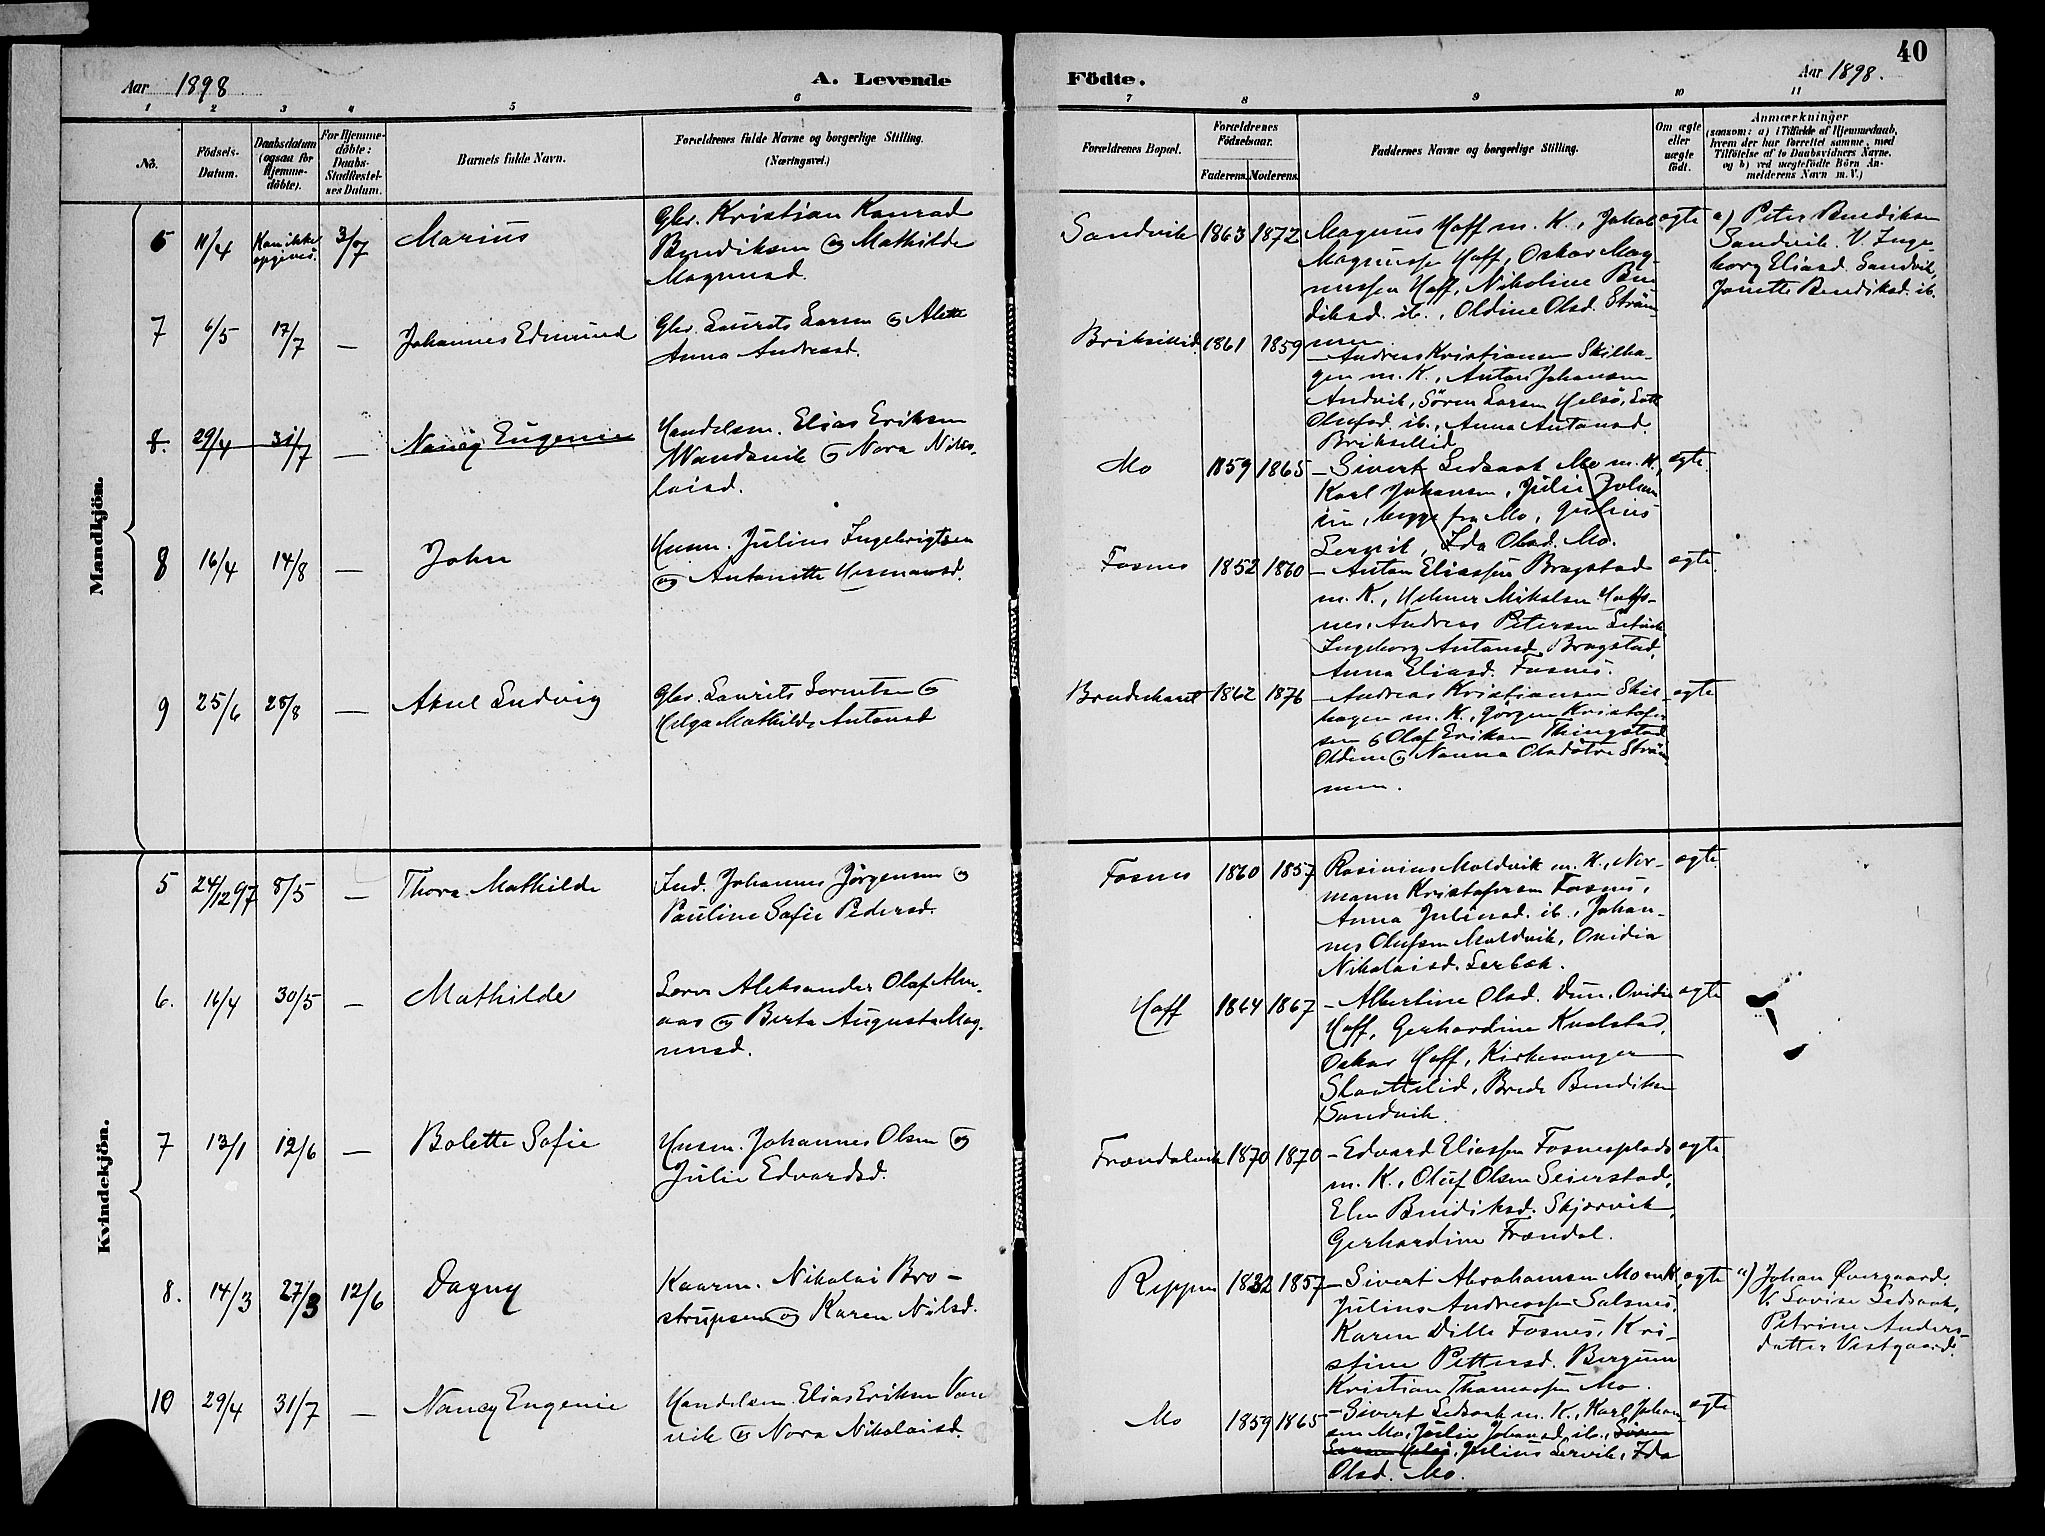 40
Aar 1898
A. Levende
Födte.
Aar 1898.
1 2 3 4 5 6 7 8 9 10 11
No.
Födsels-
Datum.
Daabsdatum
(ogsaa for
Hjemme-
döbte).
For Hjemme-
döbte:
Daabs-
Stadfæstel-
ses Datum.
Barnets fulde Navn.
Forældrenes fulde Navne og borgerlige Stilling.
(Næringsvei.)
Forældrenes Bopæl.
Forældrenes
Födselsaar.
Faderens. Moderens.
Faddernes Navne og borgerlige Stilling.
Om ægte
eller
uægte
födt.
Anmærkninger
(saasom: a) i Tilfælde af Hjemmedaab,
hvem der har forrettet samme, med
Tilföielse af to Daabsvidners Navne,
og b) ved uægtefödte Börn An-
melderens Navn m. V.)
Mandkjön.
6 11/4 Kan ikke
opgives. 3/7 Marius
Gbr. Kristian Konrad
Bendiksen og Mathilde
Magnusd.
Sandvik 1863 1872
Magnus Hoff m. K., Jakob
Magnussen Hoff, Oskar Mag-
nussen Hoff, Nikoline Ben-
diksd. ib., Oldine Olsd. Ström
men
ægte
a) Peter Bendiksen
Sandvik. V. Inge-
borg Eliasd. Sandvik,
Janette Bendiksd. ib.
7 6/5 17/7 — Johannes Edmund
Gbr. Laurits Larsen og Alette
Anna Andreasd.
1861 1859
— Andreas Kristiansen Skilha-
gen m. K., Anton Johansen
Andvik, Sören Larsen
Olufsd. ib., Anna Antonsd.
8. 29/4 31/7 — Nancy Eugenie
Handelsm. Elias Eriksen
Wandsvik og Nora Niko-
laisd.
Mo 1859 1865
— Sivert Ledsaak Mo m. K.,
Karl Johansen, Julie Johan
sen, begge fra Mo, Julius
Lervik, Ida Olsd. Mo.
ægte
8 16/4 14/8 — John
Husm. Julius Ingebrigtsen
og Antonette Hermansd.
Fosnes 1852 1860
— Anton Eliassen Bragstad
m. K., Helmer Mikalsen
nes, Andreas Petersen
Ingeborg Antonsd. Bragstad,
Anna Eliasd. Fosnes.
ægte
9 25/6 28/8 — Aksel Ludvig
Gbr. Laurits Lorentsen og
Helga Mathilde Antonsd
1862 1876
— Andreas Kristiansen Skil-
hagen m. K., Jörgen Kristofer
sen og Olaf Eriksen Thingstad
Oldine og Nanna Olsdötre Ström
men.
ægte
Kvindekjön.
5 24/12 97 8/5 — Thora Mathilde
Ind. Johannes Jörgensen og
Pauline Sofie Pedersd.
Fosnes 1860 1857
Rasinius Moldvik m. K., Nor-
mann Kristofersen Fosnes,
Anna Juliusd. ib., Johan-
nes Olufsen Moldvik, Ovidia
Nikolaisd. Lerbæk.
ægte
6. 16/4 30/5 — Mathilde
Lærer Aleksander Olaf Alm-
aas og Berta Augusta Mag-
nusd.
Hoff 1864 1867
— Albertine Olsd. Dun, Ovidia
Hoff, Gerhardine Kvalstad,
Oskar Hoff, Kirkesanger
Slottelid, Brede Bendiksen
Sandvik.
ægte
7 13/1 12/6 — Bolette Sofie
Husm. Johannes Olsen og
Julie Edvardsd.
Frændalsvik 1870 1870
— Edvard Eliassen Fosnesplads
m. K., Oluf Olsen Seierstad,
Elen Bendiksd. Skjærvik,
Gerhardine Frændal.
ægte
8. 14/3 27/3 12/6 Dagny
Kaarm. Nikolai Bro-
strupsen og Karen Nilsd.
Reppen 1832 1857
— Sivert Abrahamsen Mo m. K.
Julius Andreassen Salsnes,
Karen Dille Fosnes, Kri-
stine Pettersd. Bergum
Kristian Thomassen Mo.
ægte
a) Johan Övergaard.
V. Lovise Ledsaak,
Petrine Anders-
datter Vestgaard.
10 29/4 31/7 — Nancy Eugenie
Handelsm. Elias Eriksen Van
vik og Nora Nikolaisd.
Mo 1859 1865
— Sivert Ledsaak m. K., Karl Johan
sen Mo, Julie Johansd. ib., Sören
Larsen, Julius Lervik, Ida
Olsd. Mo.
ægte